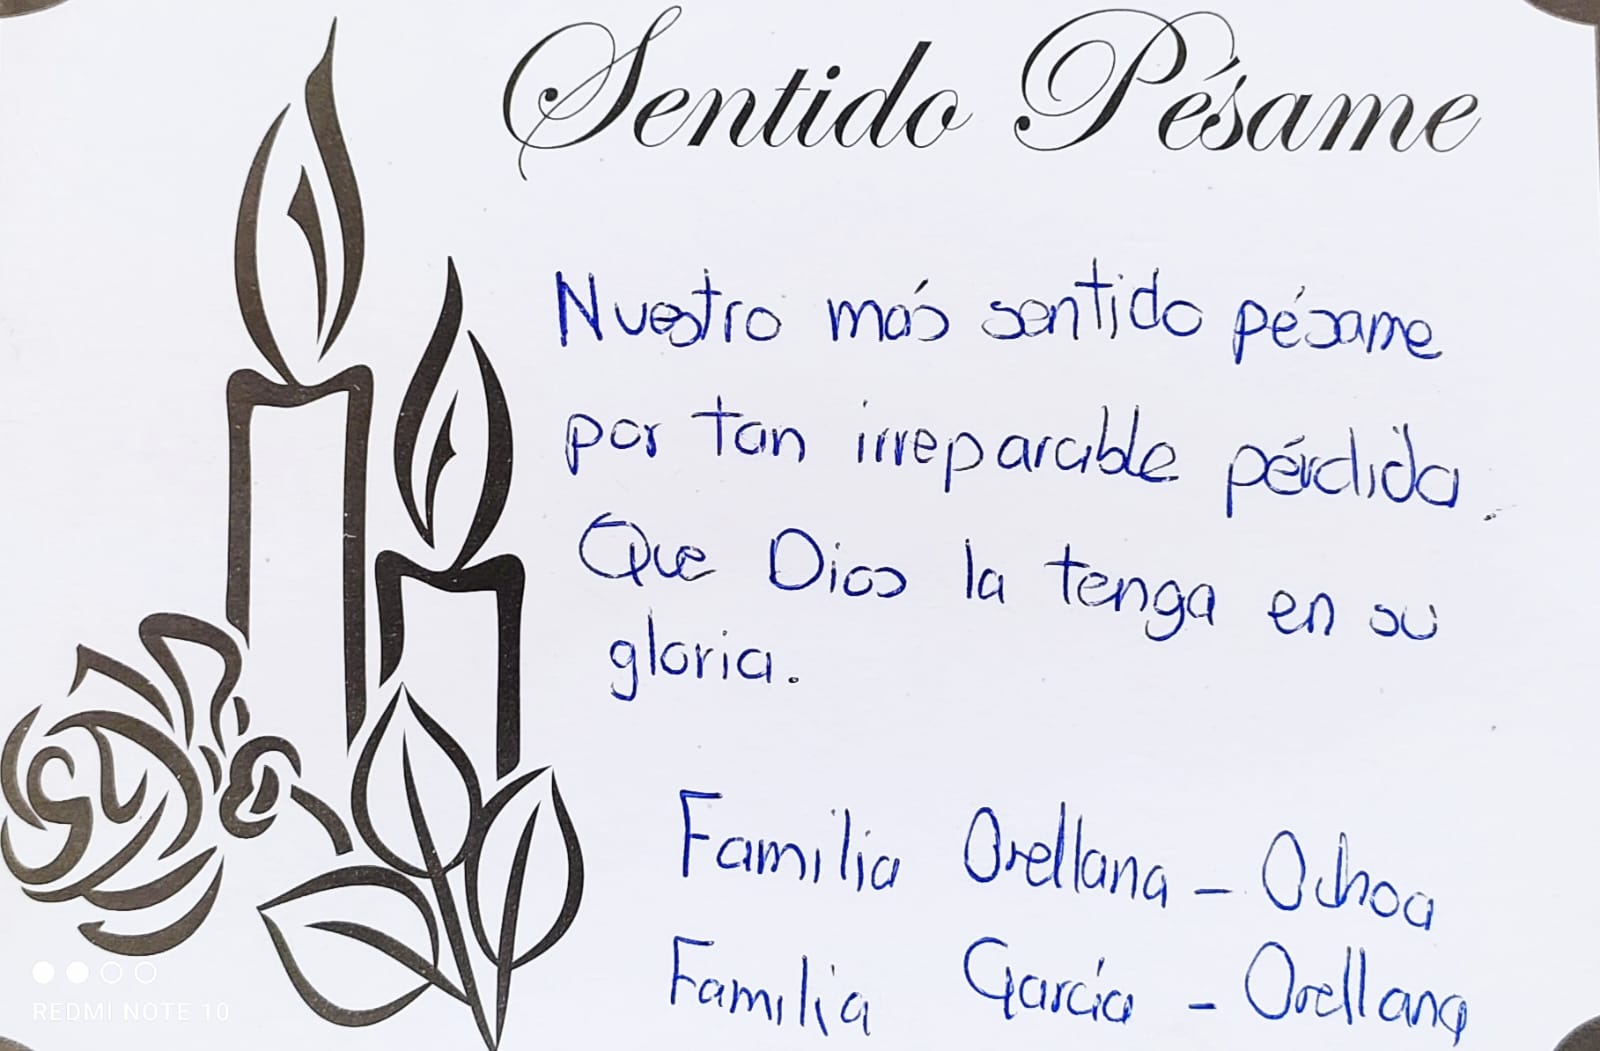 Sentido Pésame
Nuestro más sentido pésame
por tan irreparable pérdida.
Que Dios la tenga en su
gloria.
Familia Orellana - Ochoa
Familia García - Orellana
REDMI NOTE 10